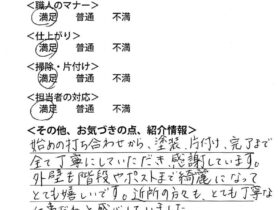 <職人のマナー>
満足 普通 不満
<仕上がり>
満足 普通 不満
<掃除・片付け>
満足 普通 不満
<担当者の対応>
満足 普通 不満
<その他、お気づきの点、紹介情報>
始めの打ち合わせから、塗装、片付け、完了まで
全て丁寧にしていただき感謝しています。
外壁も階段やポストまで綺麗になって
とても嬉しいです。近所の方々も、とても丁寧な